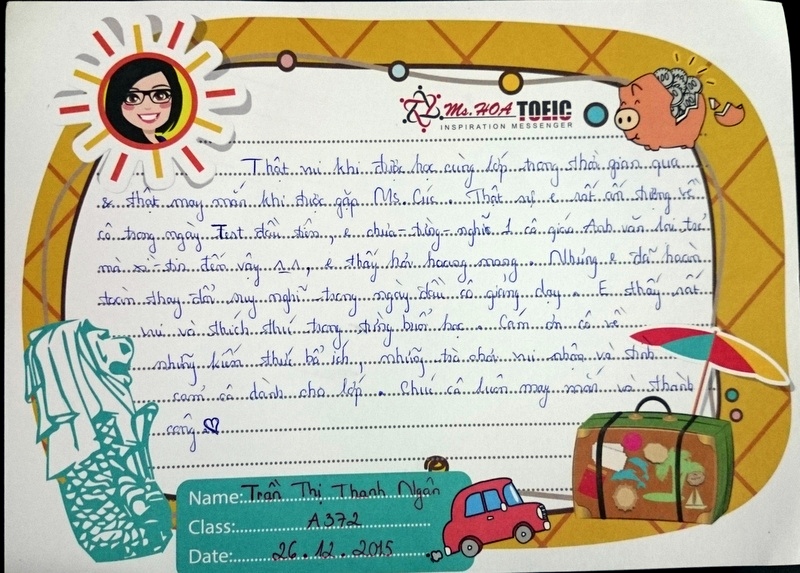 Ms. HOA TOEIC
INSPIRATION MESSENGER
Thật vui khi được học cùng lớp trong thời gian qua
& thật may mắn khi được gặp Ms. Cúc. Thật sự e rất ấn tượng về
cô trong ngày Test đầu tiên, e chưa từng nghĩ 1 cô giáo Anh văn lại trẻ
mà xì-tin đến vậy ^.^, e thấy hơi hoang mang. Nhưng e đã hoàn
toàn thay đổi suy nghĩ trong ngày đầu cô giảng dạy. E thấy rất
vui và thích thú trong từng buổi học. Cám ơn cô về
những kiến thức bổ ích, những trò chơi vui nhộn và tình
cảm cô dành cho lớp. Chúc cô luôn may mắn và thành
công ♡
Name: Trần Thị Thanh Ngân
Class: A372
Date: 26.12.2015